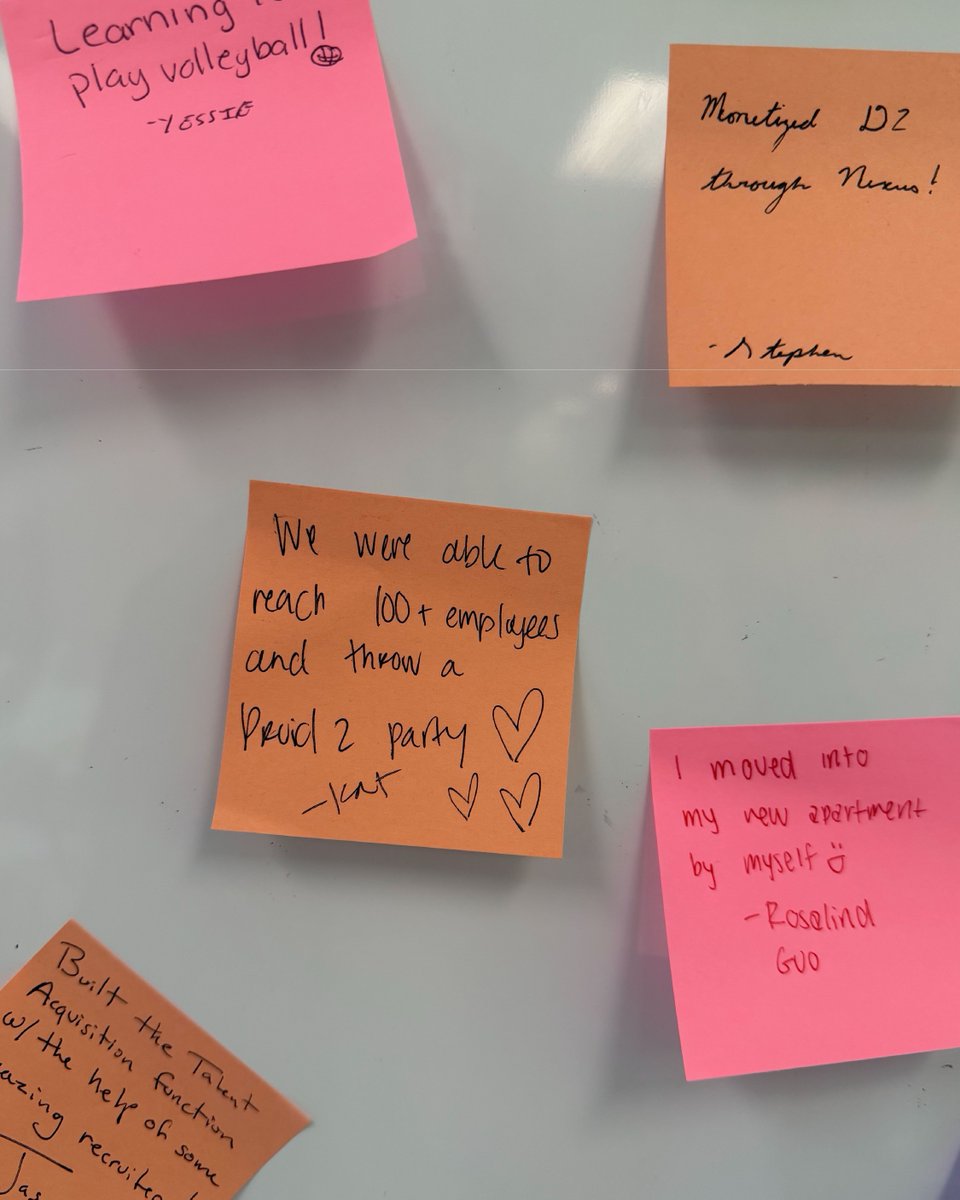 Learning
play volleyball!
-YESSIE
Monetized D2
through Nexus!
- Stephen
We were able to
reach 100+ employees
and throw a
Druid 2 party
-Kat
I moved into
my new apartment
by myself
-Rosalind
Guo
Built the Talent
Acquisition function
w/ the help of some
recruiters